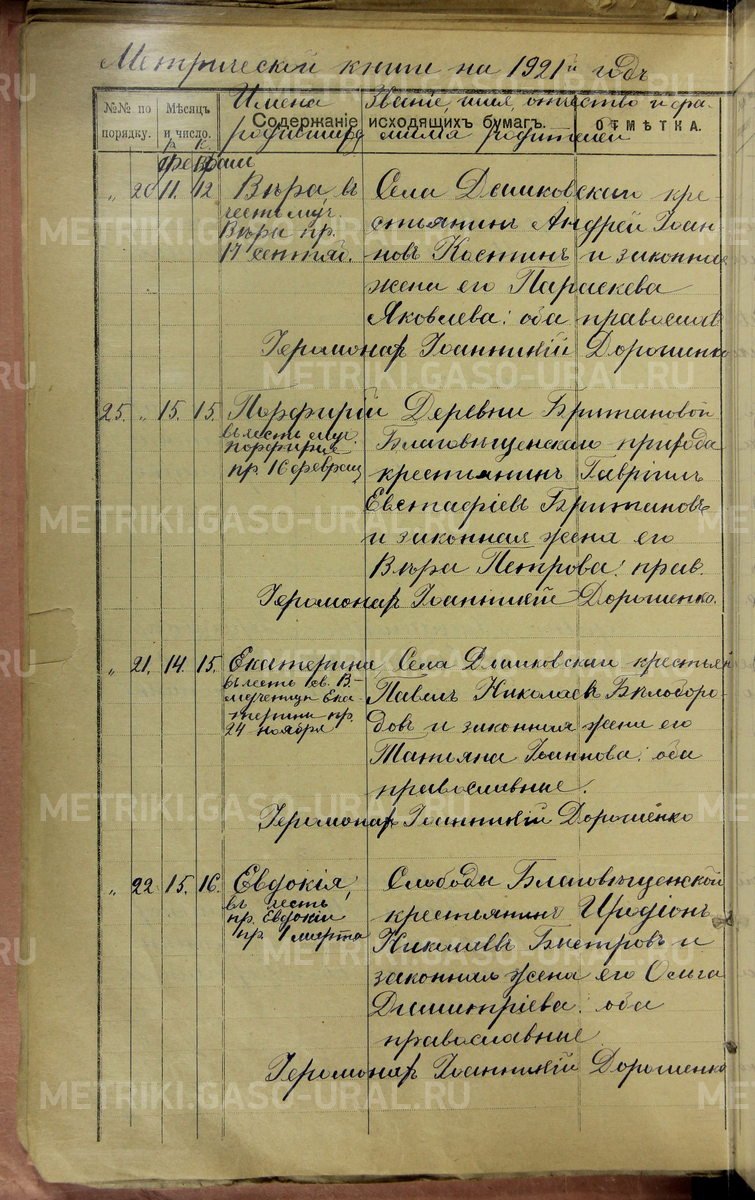 Метрической книги на 1921й годъ
№№ по порядку.
Мѣсяцъ и число.
Содержаніе исходящихъ бумагъ.
ОТМѢТКА.
Имена родившихся
Званіе, имя, отчество и фамилія родителей
Р. К.
феврали
" 20 11. 12. Вѣра, въ
честь муч.
Вѣры пр.
17 сентяб.
Села Дымковскаго кре-
стьянинъ Андрей Іоан-
новъ Костинъ и законная
жена его Параскева
Яковлева: оба православ
Іеромонах Іоанникій Дорошенко
25. " 15. 15. Порфирій
въ честь муч.
Порфирія
пр. 16 феврал
Деревни Британовой
Благовѣщенскаго прихода
крестьянинъ Гавріилъ
Евстафіевъ Британовъ
и законная жена его
Вѣра Петрова: прав.
Іеромонах Іоанникій Дорошенко.
" 21. 14. 15. Екатерина
въ честь св. В-
мученицы Ека-
терины пр.
24 ноября
Села Дымковскаго крестьян
Павелъ Николаевъ Бѣлоборо-
довъ и законная жена его
Татьяна Іоаннова: оба
православные.
Іеромонах Іоанникій Дорошенко
" 22 15. 16. Евдокія,
въ честь
пр. Евдокіи
пр. 1 марта
Слободы Благовѣщенской
крестьянинъ Иродіонъ
Николаевъ Быстровъ и
законная жена его Ольга
Димитріева: оба
православные
Іеромонах Іоанникій Дорошенко
METRIKI.GASO-URAL.RU